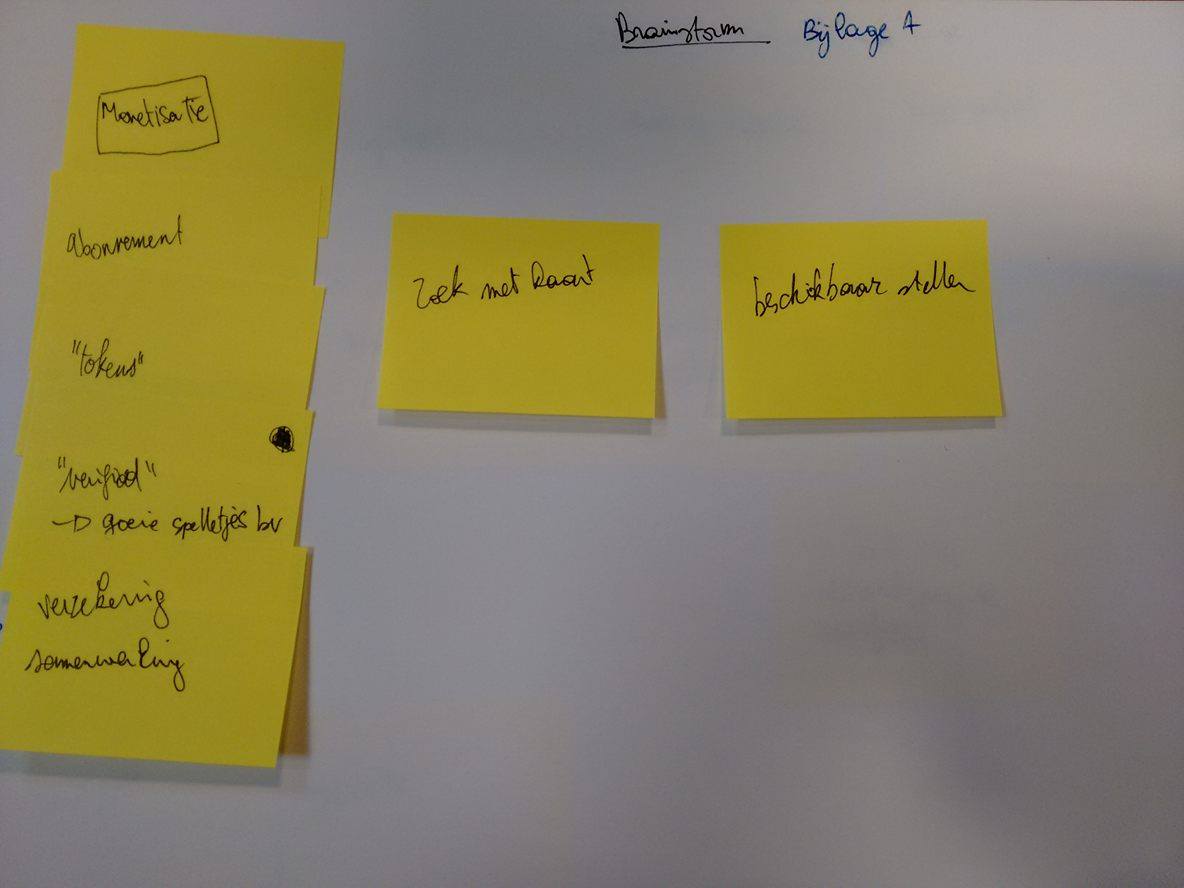 Brainstorm Bijlage A
Monetisatie
abonnement
"tokens"
"verified"
→ goeie spelletjes bv
verzekering
samenwerking
zoek met kaart
beschikbaar stellen